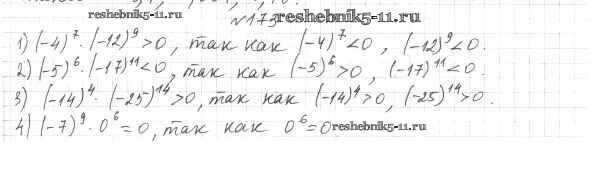 reshebnik5-11.ru
№175 reshebnik5-11.ru
1) (-4)⁷ · (-12)⁹ > 0, так как (-4)⁷ < 0, (-12)⁹ < 0.
2) (-5)⁶ · (-17)¹¹ < 0, так как (-5)⁶ > 0, (-17)¹¹ < 0.
3) (-14)⁴ · (-25)¹⁴ > 0, так как (-14)⁴ > 0, (-25)¹⁴ > 0.
4) (-7)⁹ · 0⁶ = 0, так как 0⁶ = 0 reshebnik5-11.ru